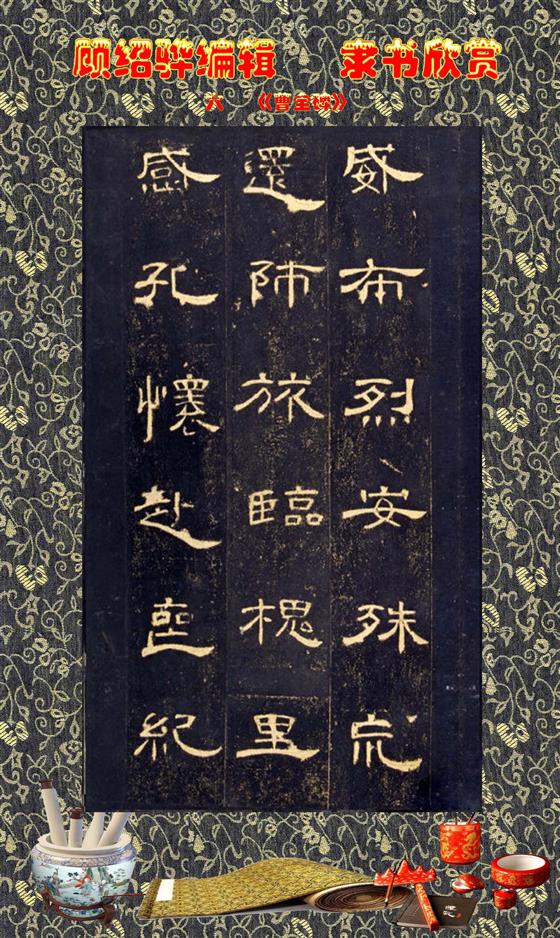 顾绍骅编辑 隶书欣赏
六 《曹全碑》
威布烈安殊巟
還師旅臨槐里
感孔懷赴喪紀